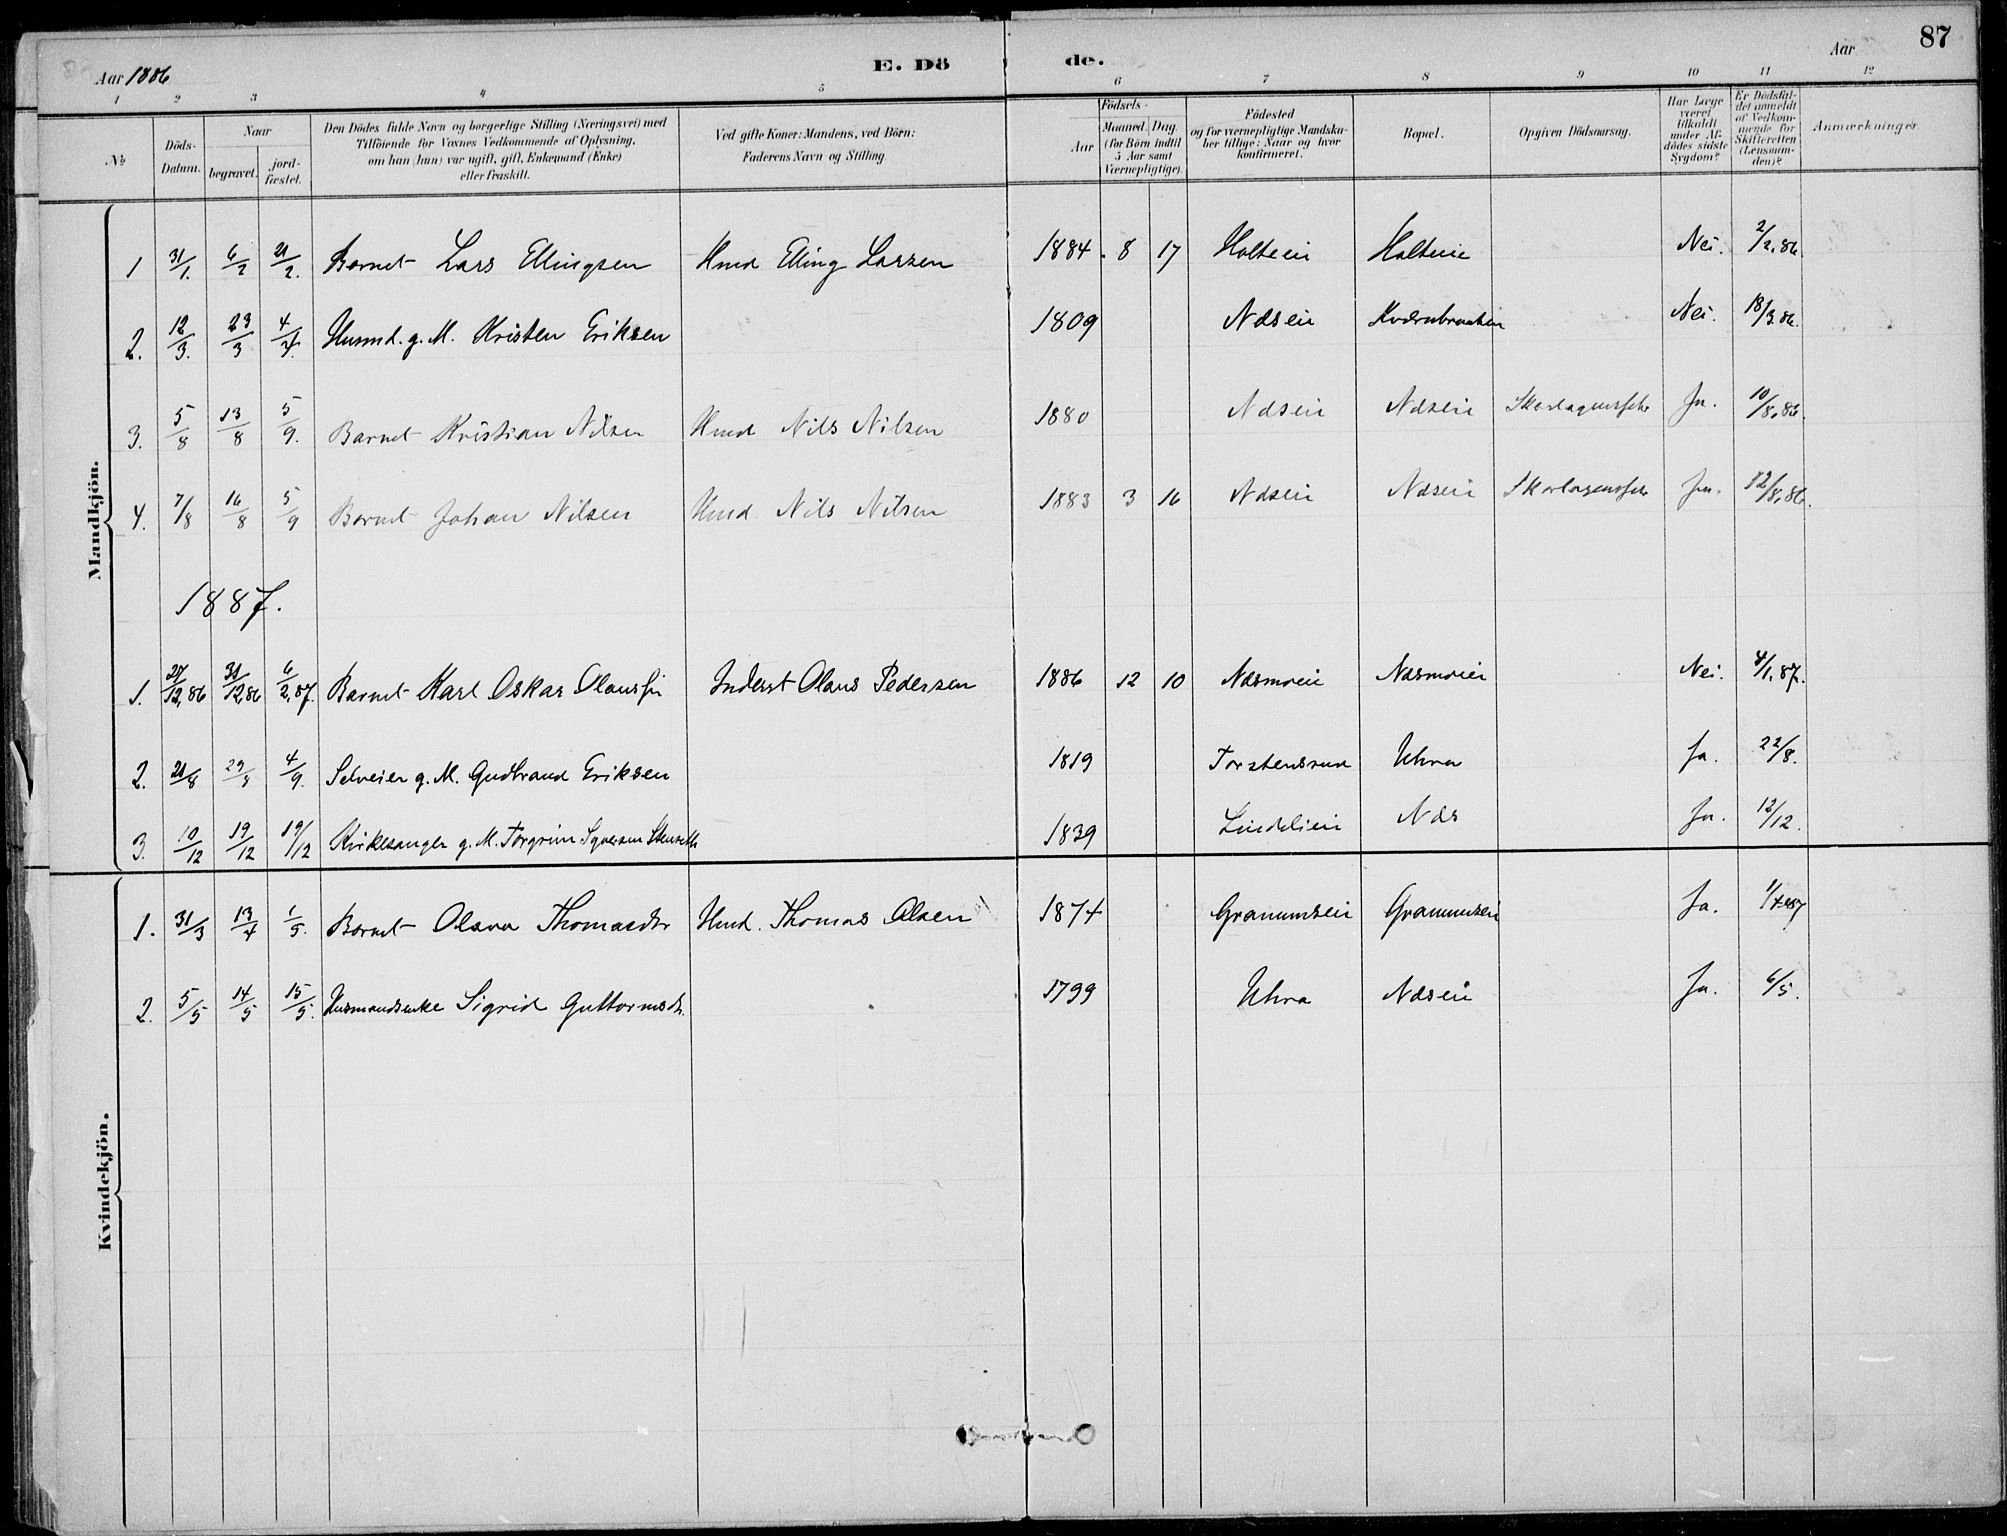 Aar 1886 E. Dö de. Aar 87
1 2 3 4 5 6 7 8 9 10 11 12
No Döds-Datum. Naar begravet. jord-fæstet. Den Dödes fulde Navn og borgerlige Stilling (Næringsvei) med Tilföiende for Voxnes Vedkommende af Oplysning, om han (hun) var ugift, gift, Enkemand (Enke) eller fraskilt. Ved gifte Koner: Mandens, ved Börn: Faderens Navn og Stilling. Födsels- Aar Maaned. Dag. (for Börn indtil 5 Aar samt Værnepligtige). Födested og for værnepligtige Mandskaber tillige: Naar og hvor konfirmeret. Bopæl. Opgiven Dödsaarsag. Har Læge været tilkaldt under Afdödes sidste Sygdom? Er Dödsfaldet anmeldt af Vedkommende for Skifteretten (Lensmanden)? Anmærkninger.
Mandkjön.
1 31/1. 6/2 21/2. Barnet Lars Ellingsen Hmd Elling Larsen 1884. 8 17 Holteeie Holteeie Nei. 2/2.86.
2. 12/3. 23/3 4/4. Husmd. g. M. Kristen Eriksen 1809 Næseie Kværnbraaten Nei. 18/3.86.
3. 5/8 13/8 5/9. Barnet Kristian Nilsen Hmd Nils Nilsen 1880 Næseie Næseie Skarlagensfeber Ja. 10/8.86.
4. 7/8 16/8 5/9 Barnet Johan Nilsen Hmd. Nils Nilsen 1883 3 16 Næseie Næseie Skarlagensfeber Ja. 12/8.86.
1887.
1. 27/12.86 31/12.86 6/2.87. Barnet Karl Oskar Olaussen Inderst Olaus Pedersen 1886 12 10 Næsmoeie Næsmoeie Nei. 4/1.87.
2. 21/8 29/8 4/9. Selveier g. M. Gudbrand Eriksen 1819 Torstensrud Uhra Ja. 22/8.
3. 10/12 19/12 19/12 Kirkesanger g. M. Torgrim Syversen Stenseth 1839 Lindelieie Næs Ja. 12/12.
Kvindekjön.
1. 31/3 13/4 1/5. Barnet Olava Thomasdtr Hmd. Thomas Olsen 1874 Granumseie Granumseie Ja. 1/4 87
2. 5/5 14/5 15/5. Husmandsenke Sigrid Guttormsdtr. 1799 Uhra Næseie Ja. 6/5.